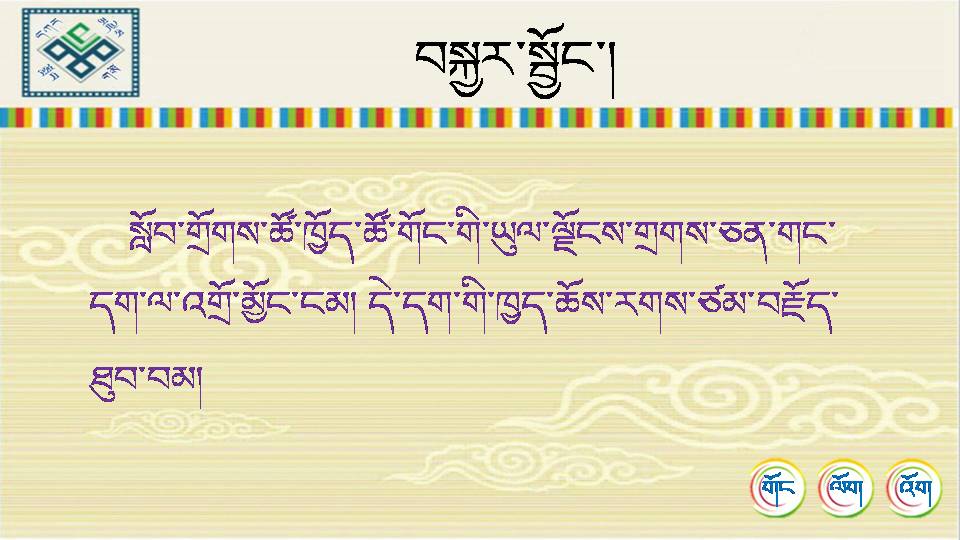 བསྐྱར་སྦྱོང་།
སློབ་གྲོགས་ཚོ་ཁྱོད་ཚོ་གོང་གི་ཡུལ་ལྗོངས་གྲགས་ཅན་གང་
དག་ལ་འགྲོ་མྱོང་ངམ། དེ་དག་གི་ཁྱད་ཆོས་རགས་ཙམ་བརྗོད་
ཐུབ་བམ།
གོང་ ལོག འོག